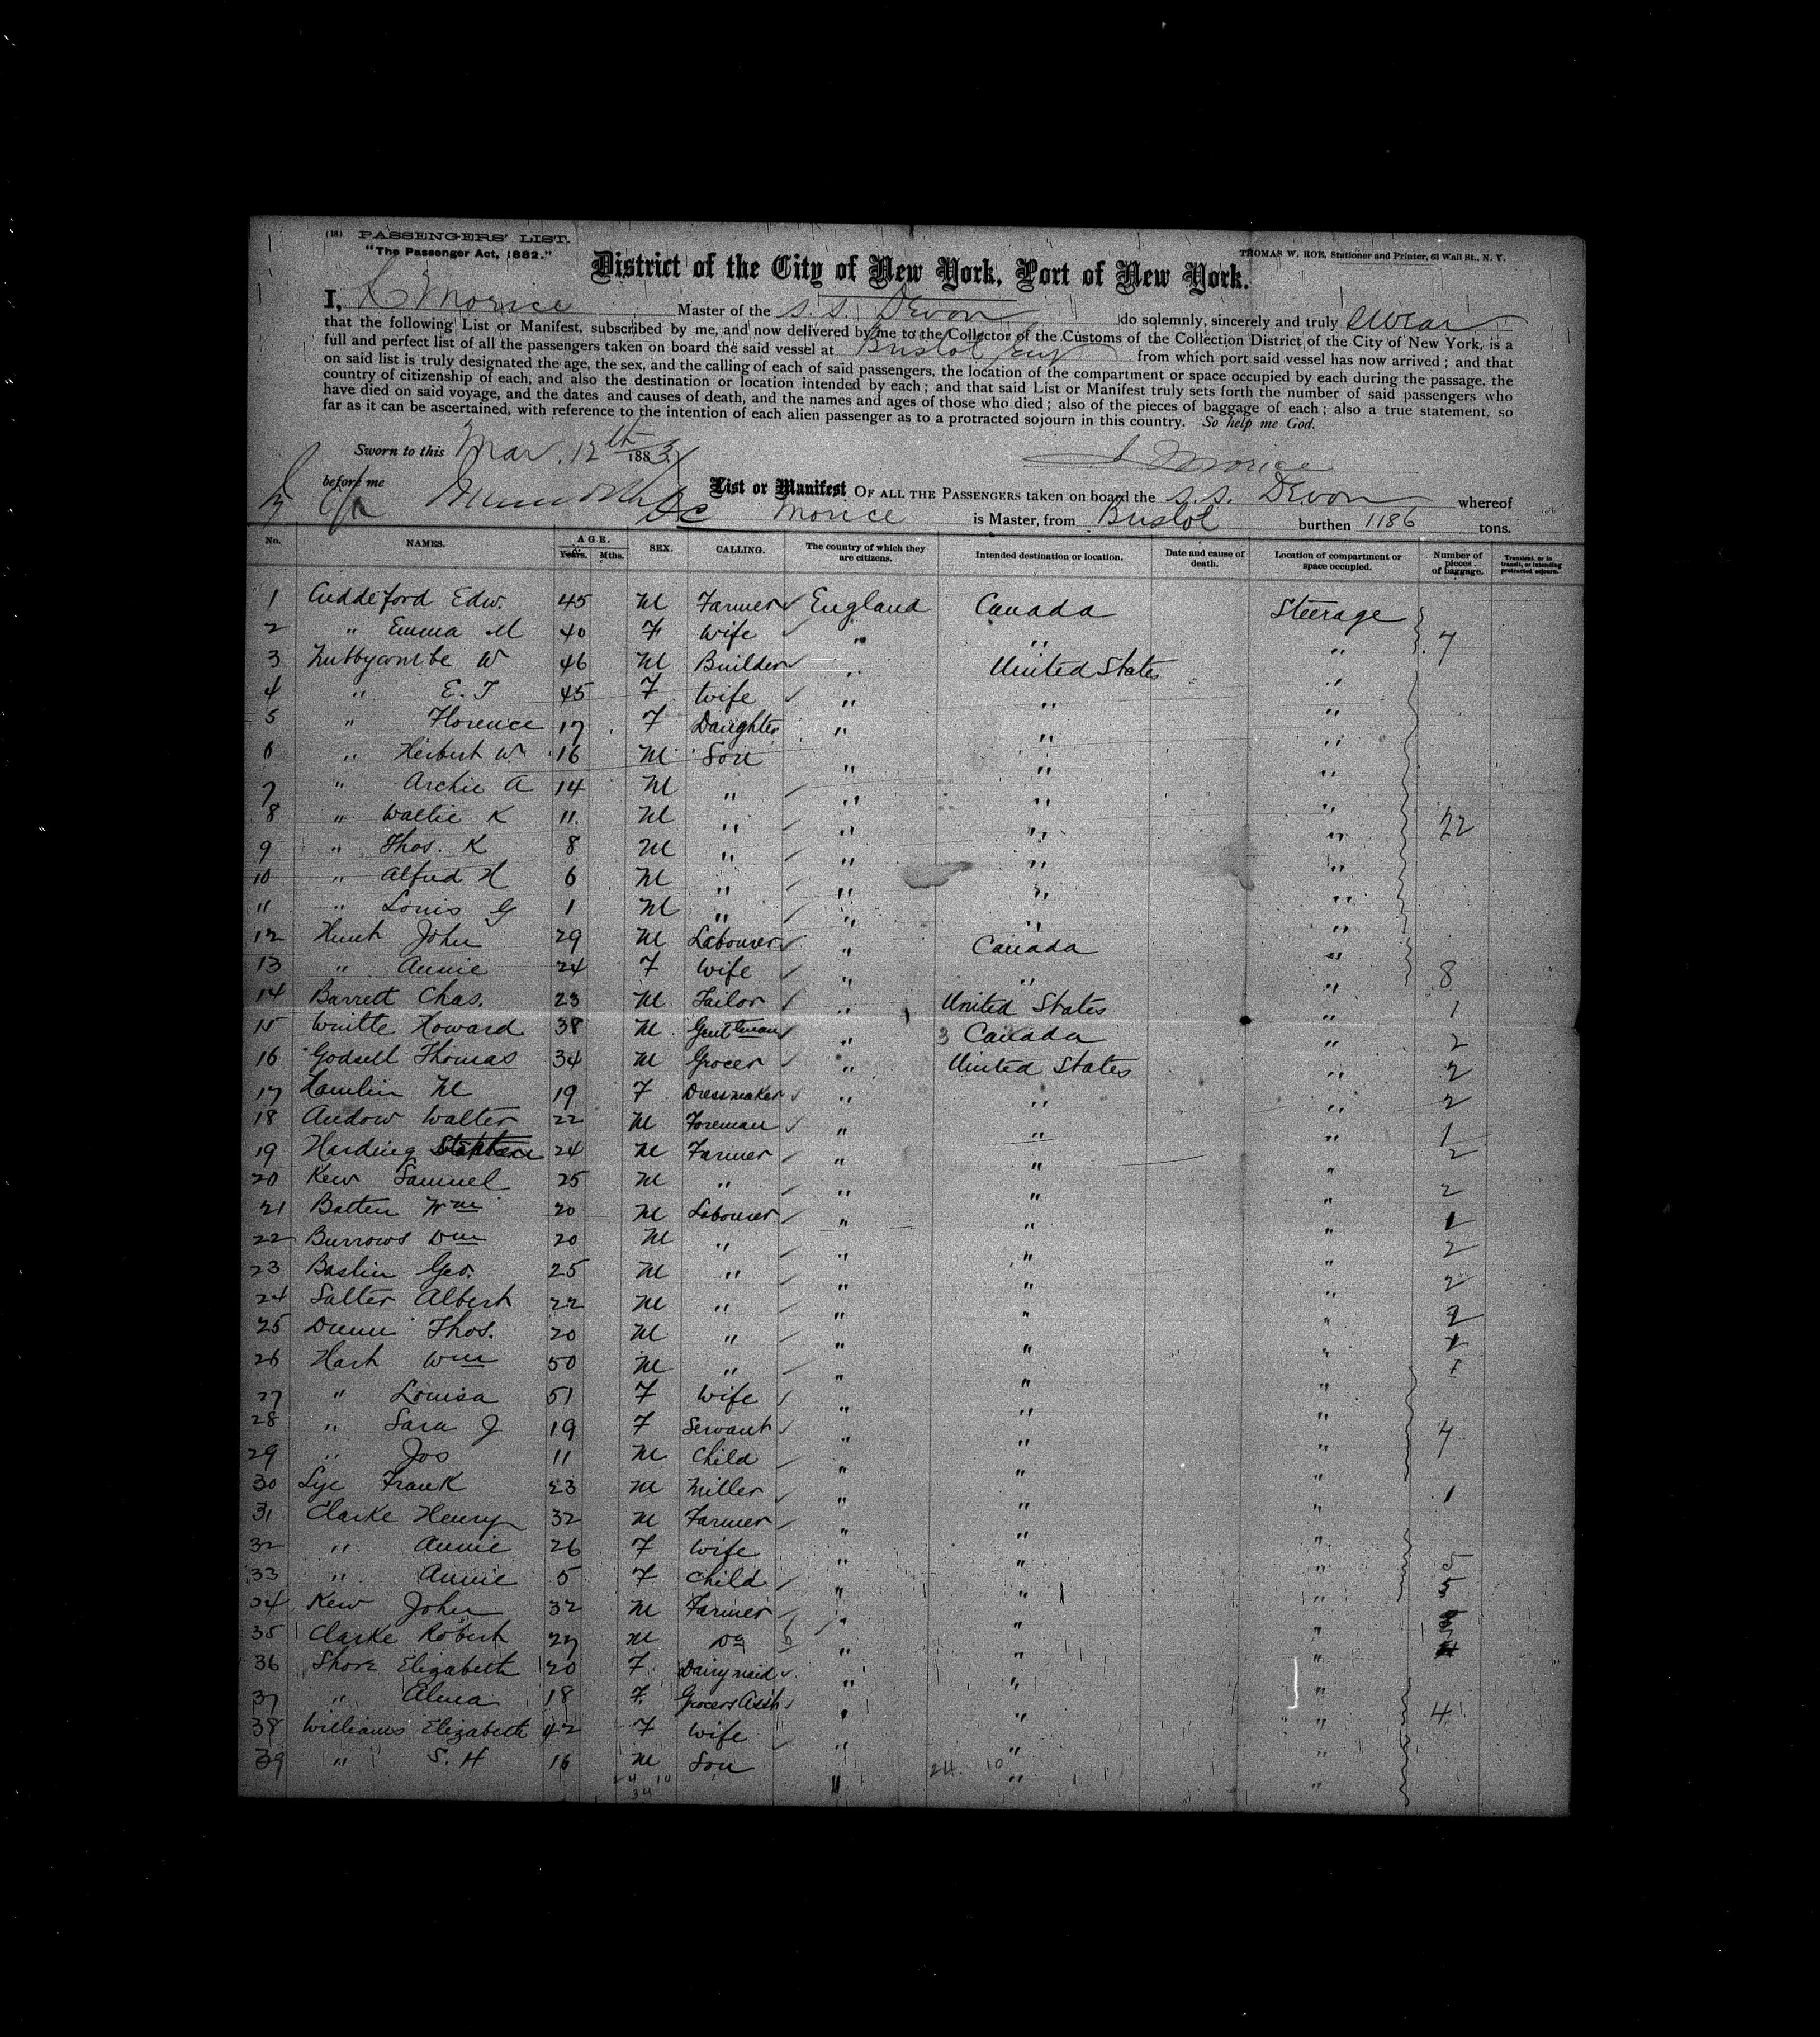 (18) PASSENGERS' LIST.
"The Passenger Act, 1882."
THOMAS W. ROE, Stationer and Printer, 63 Wall St., N. Y.
District of the City of New York, Port of New York.
I, Morice Master of the S. S. Devon do solemnly, sincerely and truly swear
that the following List or Manifest, subscribed by me, and now delivered by me to the Collector of the Customs of the Collection District of the City of New York, is a
full and perfect list of all the passengers taken on board the said vessel at Bristol Eng from which port said vessel has now arrived; and that
on said list is truly designated the age, the sex, and the calling of each of said passengers, the location of the compartment or space occupied by each during the passage, the
country of citizenship of each, and also the destination or location intended by each; and that said List or Manifest truly sets forth the number of said passengers who
have died on said voyage, and the dates and causes of death, and the names and ages of those who died; also of the pieces of baggage of each; also a true statement, so
far as it can be ascertained, with reference to the intention of each alien passenger as to a protracted sojourn in this country. So help me God.
Sworn to this Mar. 12th 1883 Morice
before me List or Manifest OF ALL THE PASSENGERS taken on board the S. S. Devon whereof
Morice is Master, from Bristol burthen 1186 tons.
No. NAMES. AGE. Years. Mths. SEX. CALLING. The country of which they are citizens. Intended destination or location. Date and cause of death. Location of compartment or space occupied. Number of pieces of baggage. Transient, or in transit, or intending protracted sojourn.
1 Cuddeford Edw. 45 M Farmer England Canada Steerage
2 " Emma M 40 F Wife " " " 7
3 Nubbycombe W 46 M Builder " United States "
4 " E. T 45 F Wife " " "
5 " Florence 17 F Daughter " " "
6 " Herbert W 16 M Son " " "
7 " Archie A 14 M " " " "
8 " Wallie K 11 M " " " " 22
9 " Thos. K 8 M " " " "
10 " Alfred H 6 M " " " "
11 " Louis G 1 M " " " "
12 Hunt John 29 M Labourer " Canada "
13 " Annie 24 F Wife " " " 8
14 Barrett Chas. 23 M Tailor " United States " 1
15 Howard 38 M Gentleman " 3 Canada " 2
16 Godsell Thomas 34 M Grocer " United States " 2
17 Hamlin M 19 F Dressmaker " " " 2
18 Andow Walter 22 M Foreman " " " 1
19 Harding 24 M Farmer " " " 2
20 Kew Samuel 25 M " " " " 2
21 Batten Wm 20 M Labourer " " " 1
22 Burrows Wm 20 M " " " " 2
23 Baslin Geo. 25 M " " " " 2
24 Salter Albert 22 M " " " " 2
25 Dunn Thos. 20 M " " " " 1
26 Hart Wm 50 M " " " "
27 " Louisa 51 F Wife " " "
28 " Sara J 19 F Servant " " " 4
29 " Jos 11 M Child " " "
30 Lye Frank 23 M Miller " " " 1
31 Clarke Henry 32 M Farmer " " "
32 " Annie 26 F Wife " " " 5
33 " Annie 5 F Child " " " 5
34 Kew John 32 M Farmer " " "
35 Clarke Robert 27 M Do " " "
36 Shore Elizabeth 20 F Dairymaid " " "
37 " Alma 18 F Grocers Asst " " " 4
38 Williams Elizabeth 42 F Wife " " "
39 " S. H 16 M Son " " "
24 10 24. 10
34